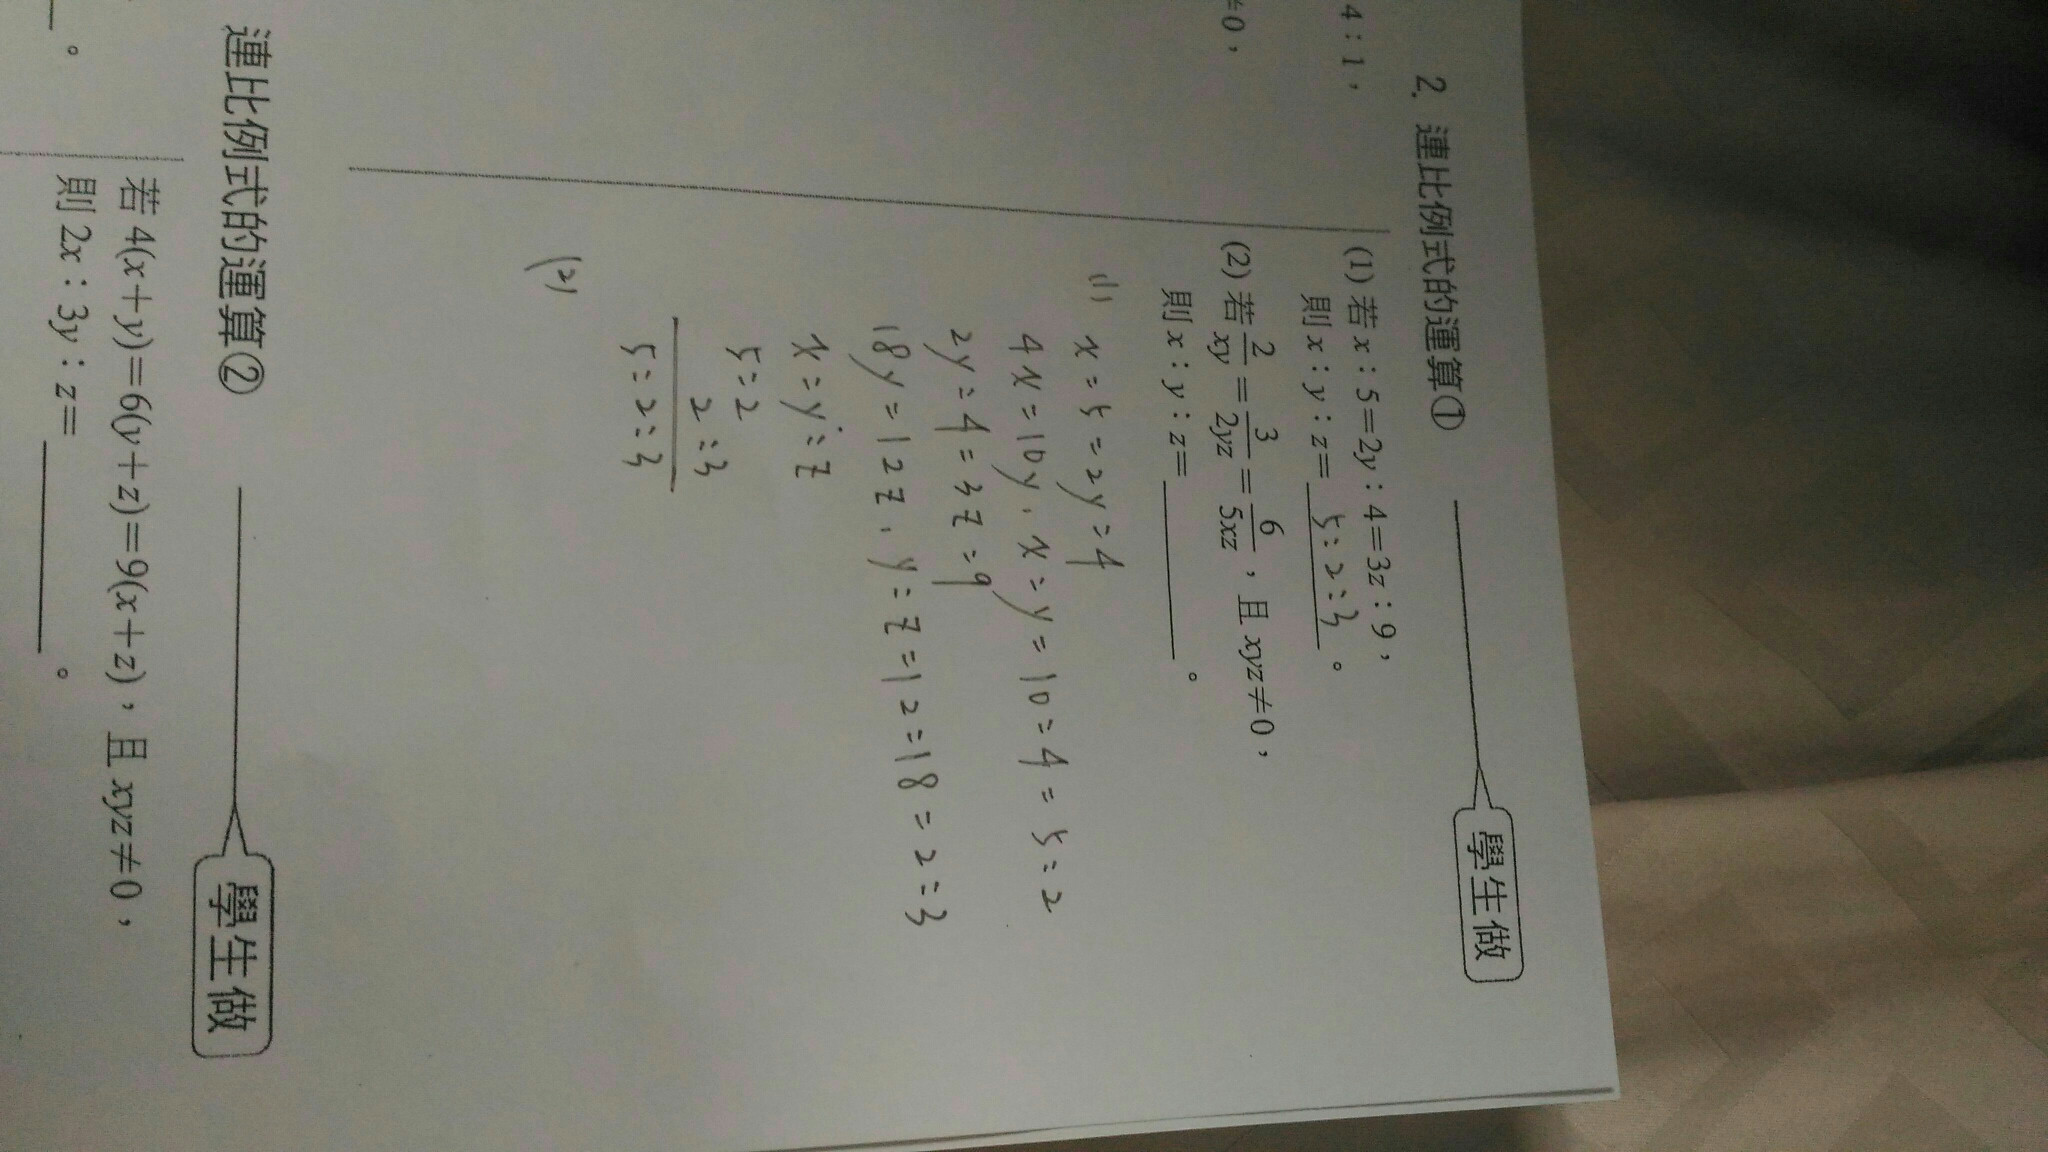 4：1，
≠0，
2. 連比例式的運算① 學生做
(1) 若 x：5＝2y：4＝3z：9，
則 x：y：z＝ 5：2：3 。
(2) 若 2/xy ＝ 3/2yz ＝ 6/5xz ，且 xyz≠0，
則 x：y：z＝ 。
(1) x：5＝2y：4
4x＝10y，x：y＝10：4＝5：2
2y：4＝3z：9
18y＝12z，y：z＝12：18＝2：3
x：y：z
5：2
2：3
5：2：3
(2)
連比例式的運算② 學生做
若 4(x＋y)＝6(y＋z)＝9(x＋z)，且 xyz≠0，
則 2x：3y：z＝ 。
。